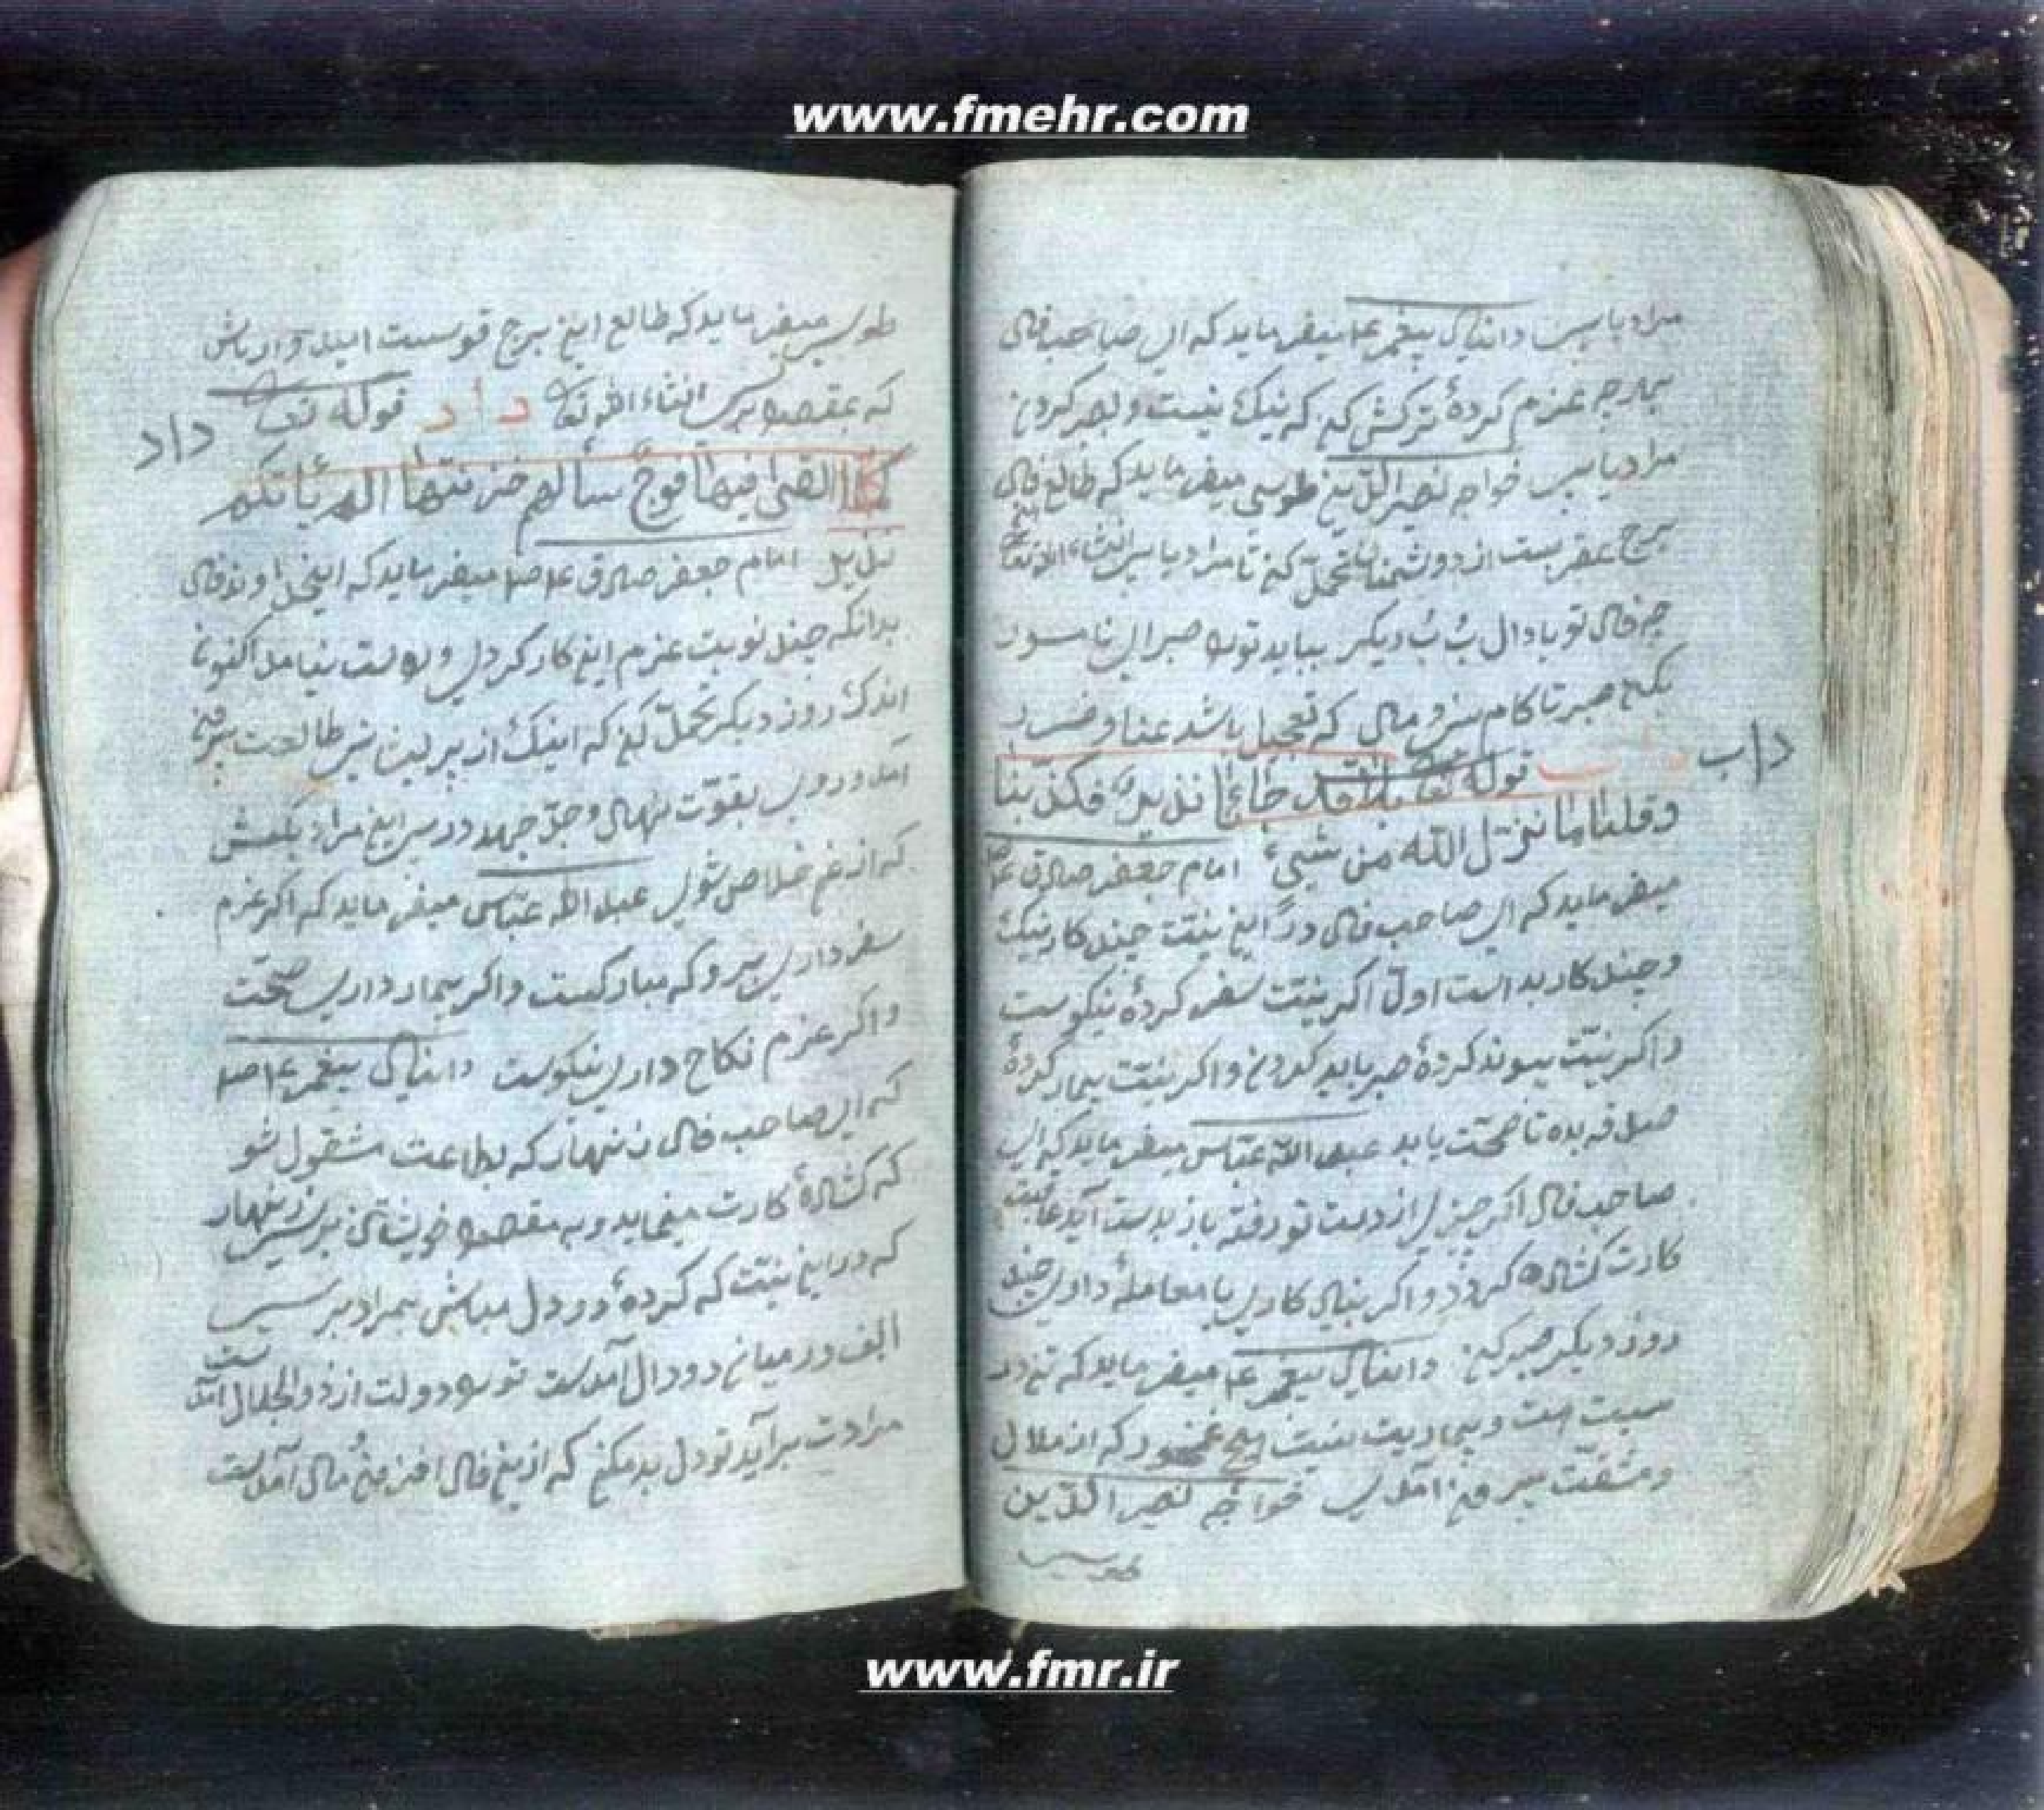 www.fmehr.com
مراد یابی دانیال پیغمبر ع میفرماید که ای صاحب فال
بهارچه عزم کردهٔ ترکش کن که نیک نیست و صبر کردن
مراد یابی خواجه نصیر الدین طوسی میفرماید که طالع فال
برج عقربست از دوشمنان تحمل کن تا مراد یابی انشاء الله تعالی
چه فال تو با دال بُ بُ دیگر بیاید تورا صبر ای نامور
بکن صبر تا کام بینی و مال که تعجیل باشد عنا و ضرر
داب
قوله تعا بلا قد جائنا نذیر فکذبنا
وقلنا ما نزل الله من شیئ امام جعفر صادق ع
میفرماید که ای صاحب فال در این نیت چند کار نیک
و چند کار بد است اول اکر نیت سفر کردهٔ نیکوست
واکر نیت پیوند کردهٔ صبر باید کردن واکر نیت بیمار کردهٔ
صدقه بده تا صحت یابد عبد الله عباس میفرماید که ای
صاحب فال اکر چیزی از دست تو رفته باز بدست آید عاقبت
کارت کشاده کردد واکر بنیاد کاری یا معامله داری چند
روز دیکر صبر کن دانیال پیغمبر ع میفرماید که تن در
ستست و بیماریت نیست هیچ غم مخور که از ملال
ومشقت بیرون آمدی خواجه نصیر الدین
طوسی
طوسی میفرماید که طالع این برج قوسست امید وار باش
که بمقصود برسی انشاء الله تعا داد قوله تعا
داد
کلما القی فیها فوج سألهم خزنتها الم یأتکم
نذیر امام جعفر صادق ع میفرماید که ایخداوند فال
بدانکه چند نوبت عزم این کار کردی و راست نیامد اکنون تا
اندک روز دیکر تحمل کن که اینک از پریشانی طالعت بیرون
آمد و روی بقوت نهاد و جد و جهد در این مراد بکش
که از غم خلاص شوی عبد الله عباس میفرماید که اکر عزم
سفر داری برو که مبارکست واکر بیمار داری صحت
واکر عزم نکاح داری نیکوست دانیال پیغمبر ع
که ای صاحب فال زنهار که بطاعت مشقول شو
که کشاده کارت مینماید و به مقصود خویشتن برسی زنهار
که در این نیت که کردهٔ در دل مباش بمراد برسی
الف در میان دو دال آمدست تورا دولت از ذوالجلال آمدست
مرادت برآید تو دل بد مکن که از این فال افزون مال آمدست
www.fmr.ir